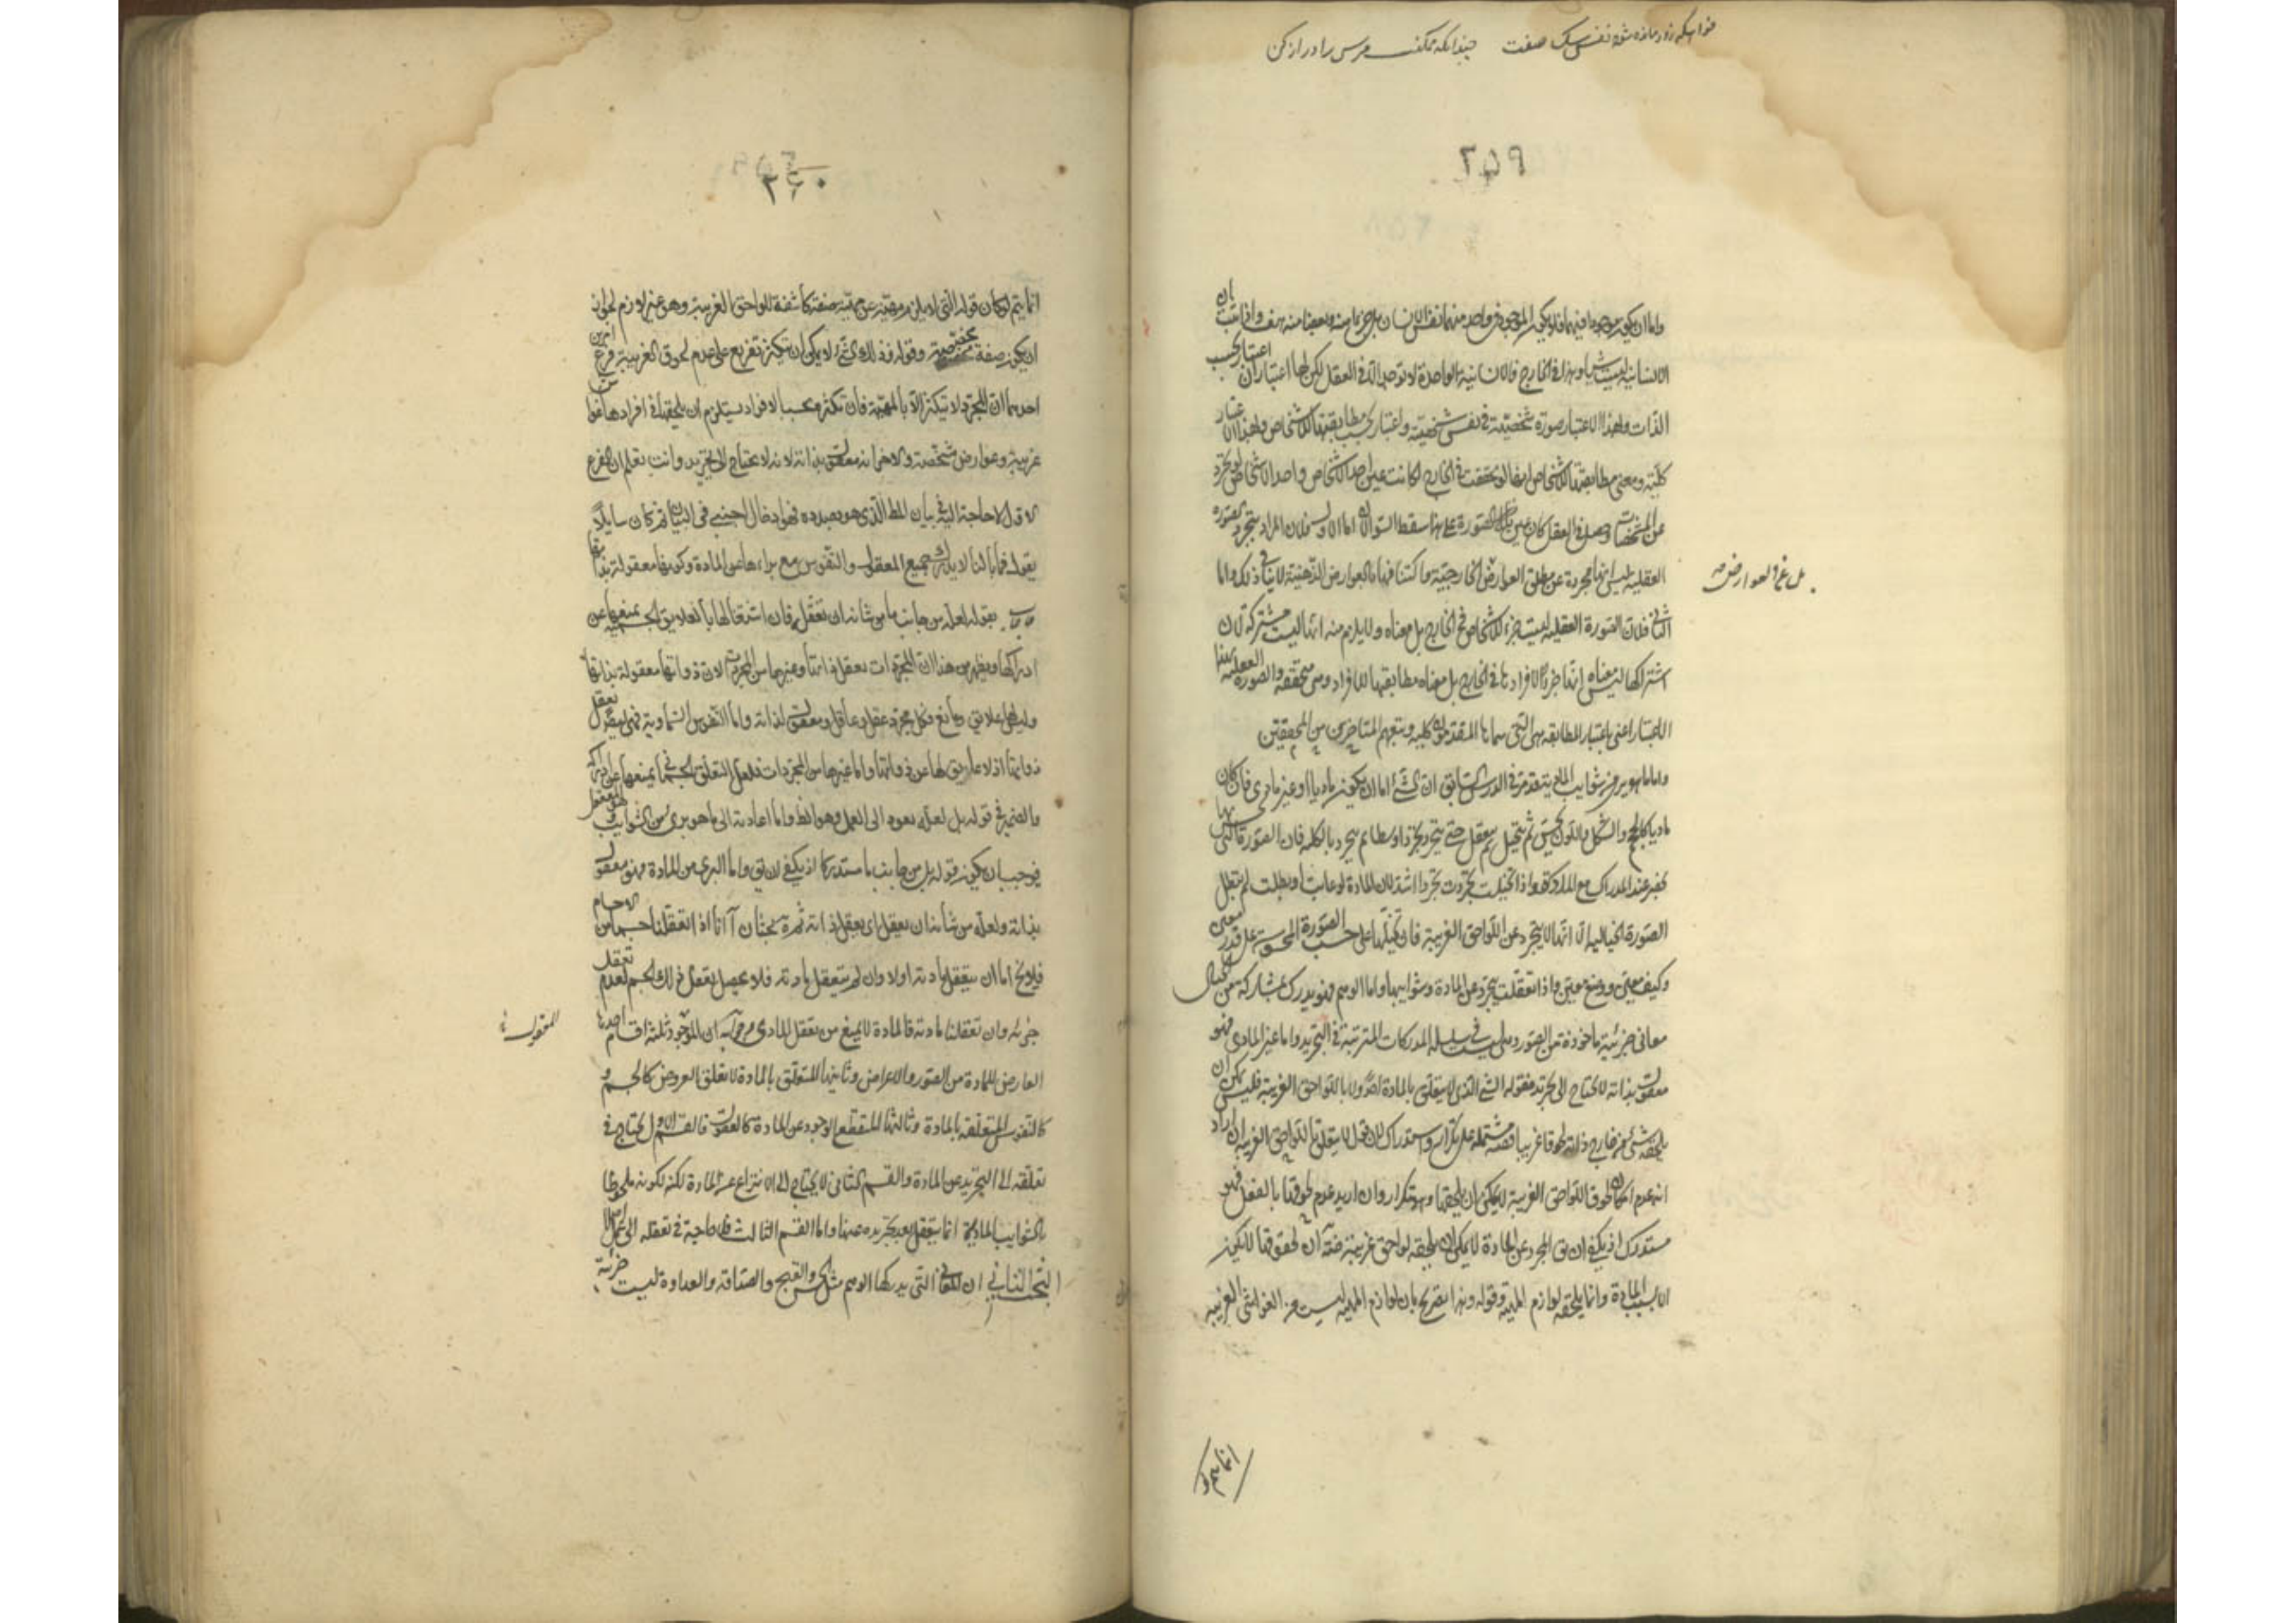 ۲۵۹
واما ان يكون موجودا فيهما فلا يكون الموجود فى واحد منهما نفس الانسان بل جزءا منه وبعضا منه هف واذا ثبت ان
الانسانية ليست شيئا وهذا فى الخارج فالانسانية الواحدة لا توجد الا فى العقل لكن لها اعتباران اعتبار بحسب
الذات ولهذا الاعتبار صورة شخصية فى نفس شخصية واعتبار بحسب مطابقتها للاشخاص ولهذا الاعتبار
كلية ومعنى مطابقتها للاشخاص انها لو تحققت فى الخارج لكانت عين احد الاشخاص واحد الاشخاص لو تجرد
عن المشخصات وحصل فى العقل كان عين تلك الصورة على هذا سقط السؤالان اما الاول فلان المراد بتجرد الصورة
العقلية ليس انها مجردة عن مطلق العوارض بل عن العوارض الخارجية واكتنافها بالعوارض الذهنية لا ينافى ذلك واما
الثانى فلان الصورة العقلية ليست جزءا للاشخاص فى الخارج بل معناه ولا يلزم منه انها ليست مشتركة لان
اشتراكها ليس معناه انها جزء الافراد ها فى الخارج بل معناه مطابقتها للافراد وهى متحققة والصورة العقلية بهذا
الاعتبار اعنى باعتبار المطابقة هى التى سماها المتقدمون كلية وتبعهم المتاخرين من المحققين
واما ما هو برى من شوايب المادية تقدم فى الدرس السابق ان الشئ اما ان يكون ماديا او غير مادى فان كان
ماديا كالجسم والشكل واللون يحس ثم يتخيل ثم يعقل حتى يتجرد تجردا اوسطا ثم يتجرد بالكلية فان الصورة التى
تحضر عند المدرك مع المادة واذا تخيلت تجردت تجردا اشد لان المادة لو غابت او بطلت لم تبطل
الصورة الخيالية الا انها لا يتجرد عن اللواحق الغريبة فان تخيلها على حسب الصورة المحسوسة على قدر معين
وكيف معين ووضع معين واذا تعقلت يتجرد عن المادة وشوايبها واما الوهم فهو يدرك بمشاركة من الخيال
معانى جزئية ماخوذة من الصور وليست فى سلسلة المدركات المترتبة فى التجريد واما غير المادى فهو
معقول بذاته لا يحتاج الى تجريد فقوله الشئ الذى لا يتعلق بالمادة اصلا ولا باللواحق الغريبة فليس يمكن ان
يلحقه شئ من خارج ذاته لحوقا غريبا فقضية مشتملة على تكرار واستدراك لان قوله لا يتعلق باللواحق الغريبة ان اراد
انه عدم امكان لحوق اللواحق الغريبة لا يمكن ان يلحقها وهو تكرار وان اريد عدم لحوقها بالفعل فهو
مستدرك اذ يكفى ان يق المجرد عن المادة لا يمكن ان يلحقه لواحق غريبة ضرورة ان لحوقها لا يكون
الا بسبب المادة وانما يلحقه لوازم المهية وقوله وهذا تصريح بان لوازم المهية ليست من الغواشى الغريبة
بل عن العوارض صح
انما يتم لو
۲۶۰
انما يتم لو كان قوله التى لا يلزم مهيته عن مهيته صفة كاشفة للواحق الغريبة وهو غير لازم لجواز
ان يكون صفة مخصصة وقوله فذلك الشئ لا يمكن ان يتكثر تفريع على عدم لحوق الغريبة فرع امرين
احدهما ان المجرد لا يتكثر الا بالمهية فان تكثره بحسب الافراد يستلزم ان يلحقها فى افرادها غواش
غريبة وعوارض مشخصة والاخر انه معقول بذاته لانه لا يحتاج الى تجريد وانت تعلم ان الفرع
الاول لا حاجة اليه فى بيان المط الذى هو بصدده فهو ادخال اجنبى فى البيان ثم كان سايلا
يقول فما بالنا لا يدرك جميع المعقول والنفوس مع براءها عن المادة وكونها معقولة بذاتها
فاجاب بقوله لعله من جانب ما من شانه ان تعقله فان اشتغالها بالعلايق الجسمية يمنعها عن
ادراكها ويظهر من هذا ان المجردات يعقل ذاتها وغيرها من المجردات لان ذواتها معقولة بذاتها
وليس لها علايق ومانع فكل مجرد عقل وعاقل ومعقول لذاته واما النفوس السماوية فهى يعقل
ذواتها اذ لا علايق لها عن ذواتها واما غيرها من المجردات فلعل التعلق الجسمانى يمنعها عن ادراكه
والضمير فى قوله بل لعله يعود الى العمل وهو الظ واما اعادته الى ما هو برى من الشوايب وهو المعقول
فيوجب ان يكون قوله بل من جانب ما مستدركا اذ يكفى ان يق واما البرى من المادة فهو معقول
بذاته ولعله من شانه ان يعقل اى يعقل ذاته ثمرة بحثان آ انا اذا تعقلنا جسما من الاجسام
فلا يخ اما ان يتعقل مادته اولا وان لم يتعقل مادته فلا يحصل تعقل ذلك الجسم لعدم تعقل
جزئه وان تعقلنا مادته فالمادة لا يمنع من تعقل المادى وجوابه ان الموجود ثلثة اقسام احدها
العارض للمادة من الصور والاعراض وثانيها المتعلق بالمادة لا تعلق العروض كالجسم و
كالنفوس المتعلقة بالمادة وثالثها المنقطع الوجود عن المادة كالعقول فالقسم الاول يحتاج فى
تعلقه الى التجريد عن المادة والقسم الثانى لا يحتاج الى الانتزاع عن المادة لكنه لكونه ملحوظا
بالشوايب المادية انما يتعقل بعد تجريده عنها واما القسم الثالث فلا حاجة فى تعقله الى عمل اصلا
البحث الثانى ان المعانى التى يدركها الوهم مثل الحسن والقبح والصداقة والعداوة ليست جزئية
المعقول